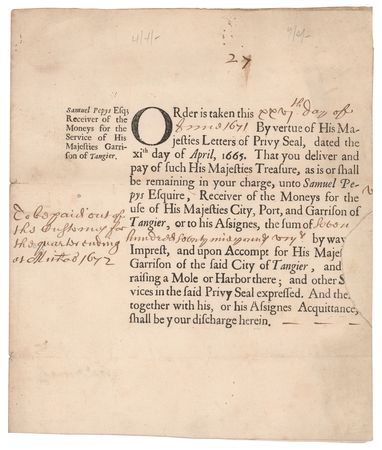 27
Samuel Pepys Esq;
Receiver of the
Moneys for the
Service of His
Majesties Garri-
son of Tangier.
ORder is taken this xxvi th day of
June 1671 By vertue of His Ma-
jesties Letters of Privy Seal, dated the
xith day of April, 1665. That you deliver and
pay of such His Majesties Treasure, as is or shall
be remaining in your charge, unto Samuel Pe-
pys Esquire, Receiver of the Moneys for the
use of His Majesties City, Port, and Garrison of
Tangier, or to his Assignes, the sum of
hundred by way
Imprest, and upon Accompt for His Majes
Garrison of the said City of Tangier, and
raising a Mole or Harbor there; and other S
vices in the said Privy Seal expressed. And the
together with his, or his Assignes Acquittance,
shall be your discharge herein.
To be paid out of
the Customs for
the quarter ending
at 1672